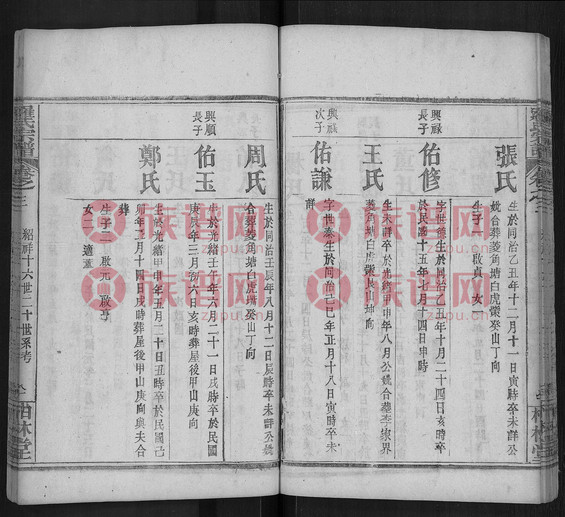 張氏
生於同治乙丑年十二月十一日寅時卒未詳公
妣合葬菱角塘白虎嘴癸山丁向
生子一啟貞女一
興祿長子
佑修
字世
於民國十五年七月十四日申時
王氏
生卒未詳
菱角塘白虎嘴艮山坤向
興祿次子
佑謙
字世泰生於同治己巳年正月十八日寅時卒未
周氏
生於同治壬辰年八月十二日辰時卒未詳公妣
合葬菱角塘白虎嘴癸山丁向
興順長子
佑玉
生於光緒壬午年六月二日亥時卒於民國
庚辰年三月初六日亥時葬屋後甲山庚向
鄭氏
生於光緒甲申年五月二十日丑時卒於民國己
卯年二月十四日戌時葬屋後甲山庚向與夫合
葬
生子二啟元啟亨
女二適葉
羅氏宗譜
卷之三
紹祥十六世二十世系考
柏林堂
族譜网